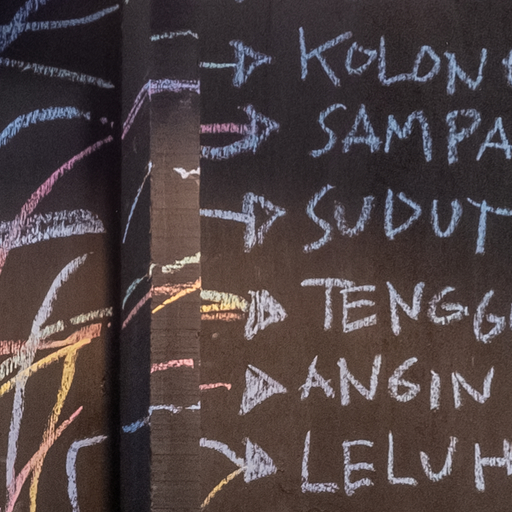 KOLON
SAMPA
SUDUT
TENGG
ANGIN
LELUH